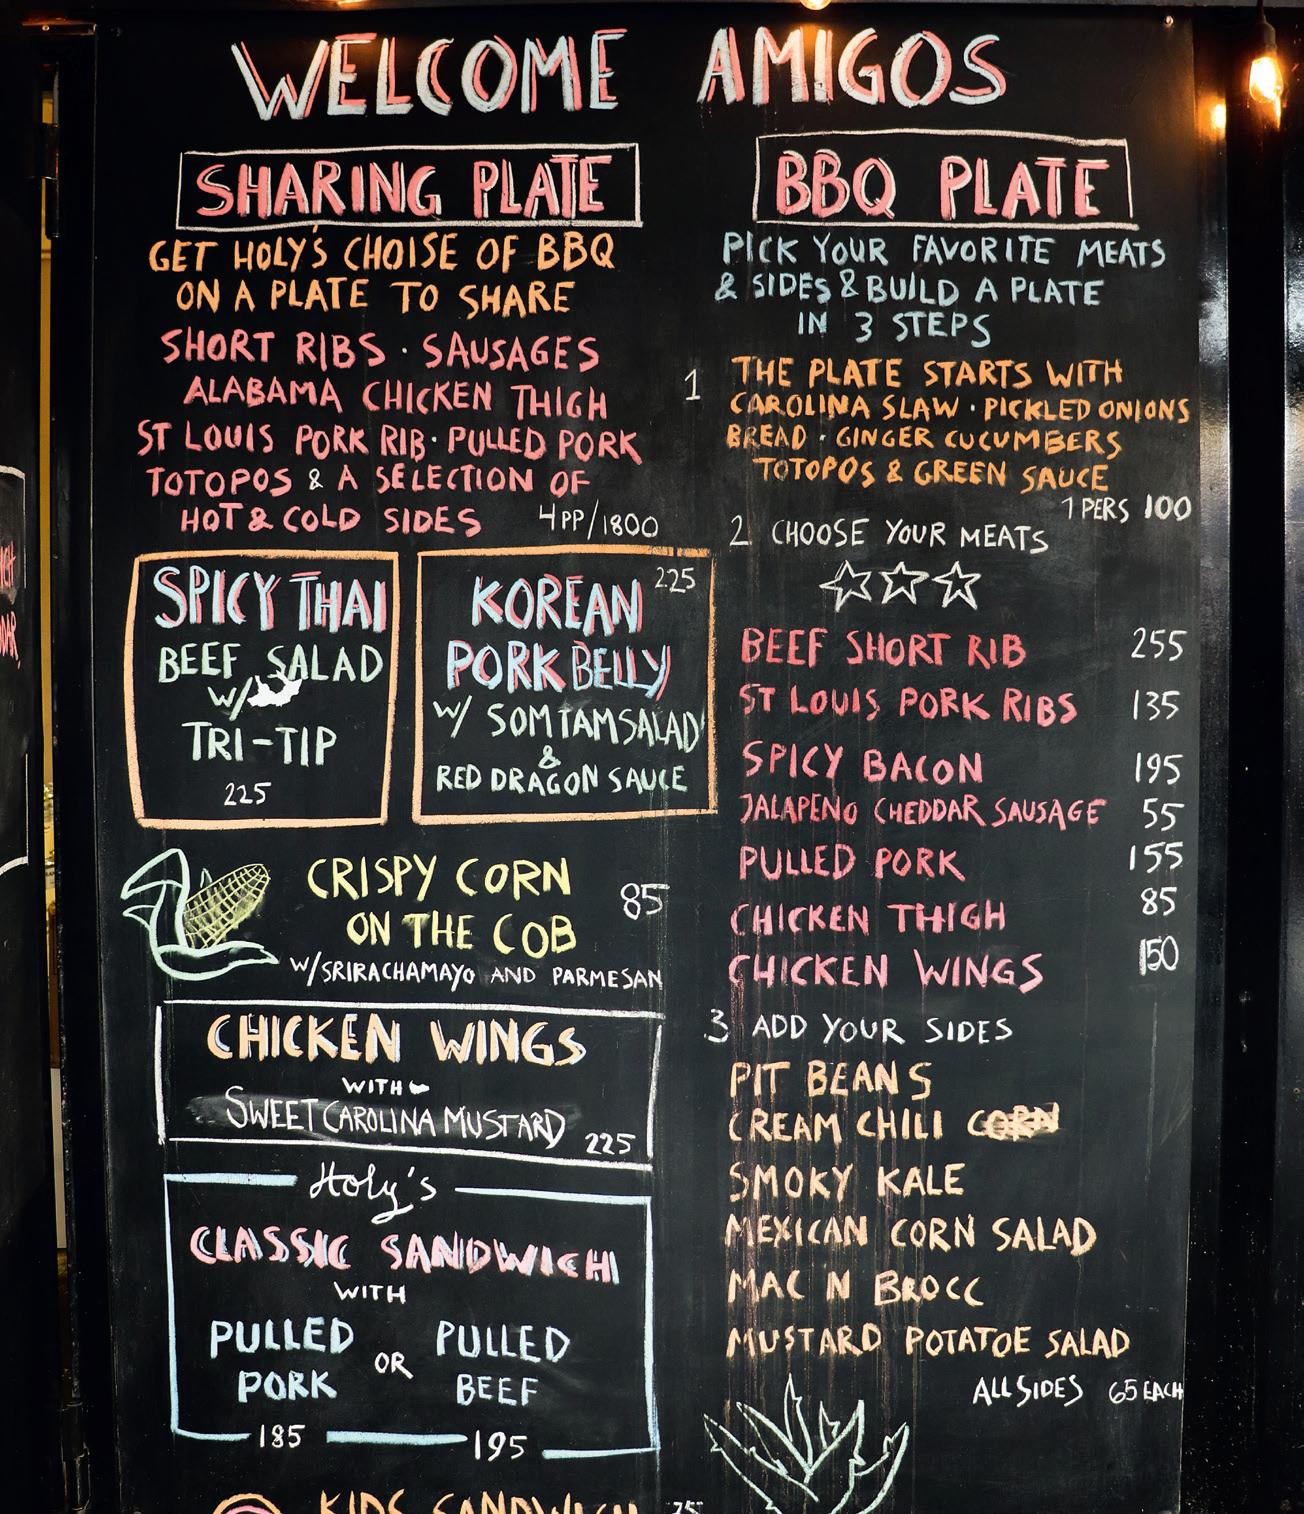 WELCOME AMIGOS
SHARING PLATE
GET HOLY'S CHOISE OF BBQ
ON A PLATE TO SHARE
SHORT RIBS · SAUSAGES
ALABAMA CHICKEN THIGH
ST LOUIS PORK RIB · PULLED PORK
TOTOPOS & A SELECTION OF
HOT & COLD SIDES 4PP/1800
SPICY THAI
BEEF SALAD
W/
TRI-TIP
225
KOREAN 225
PORK BELLY
W/ SOMTAM SALAD
&
RED DRAGON SAUCE
CRISPY CORN
ON THE COB 85
W/SRIRACHAMAYO AND PARMESAN
CHICKEN WINGS
WITH
SWEET CAROLINA MUSTARD 225
Holy's
CLASSIC SANDWICH
WITH
PULLED PORK OR PULLED BEEF
185 195
KIDS SANDWICH
BBQ PLATE
PICK YOUR FAVORITE MEATS
& SIDES & BUILD A PLATE
IN 3 STEPS
1 THE PLATE STARTS WITH
CAROLINA SLAW · PICKLED ONIONS
BREAD · GINGER CUCUMBERS
TOTOPOS & GREEN SAUCE
1 PERS 100
2 CHOOSE YOUR MEATS
BEEF SHORT RIB 255
ST LOUIS PORK RIBS 135
SPICY BACON 195
JALAPENO CHEDDAR SAUSAGE 55
PULLED PORK 155
CHICKEN THIGH 85
CHICKEN WINGS 150
3 ADD YOUR SIDES
PIT BEANS
CREAM CHILI CORN
SMOKY KALE
MEXICAN CORN SALAD
MAC N BROCC
MUSTARD POTATOE SALAD
ALL SIDES 65 EACH